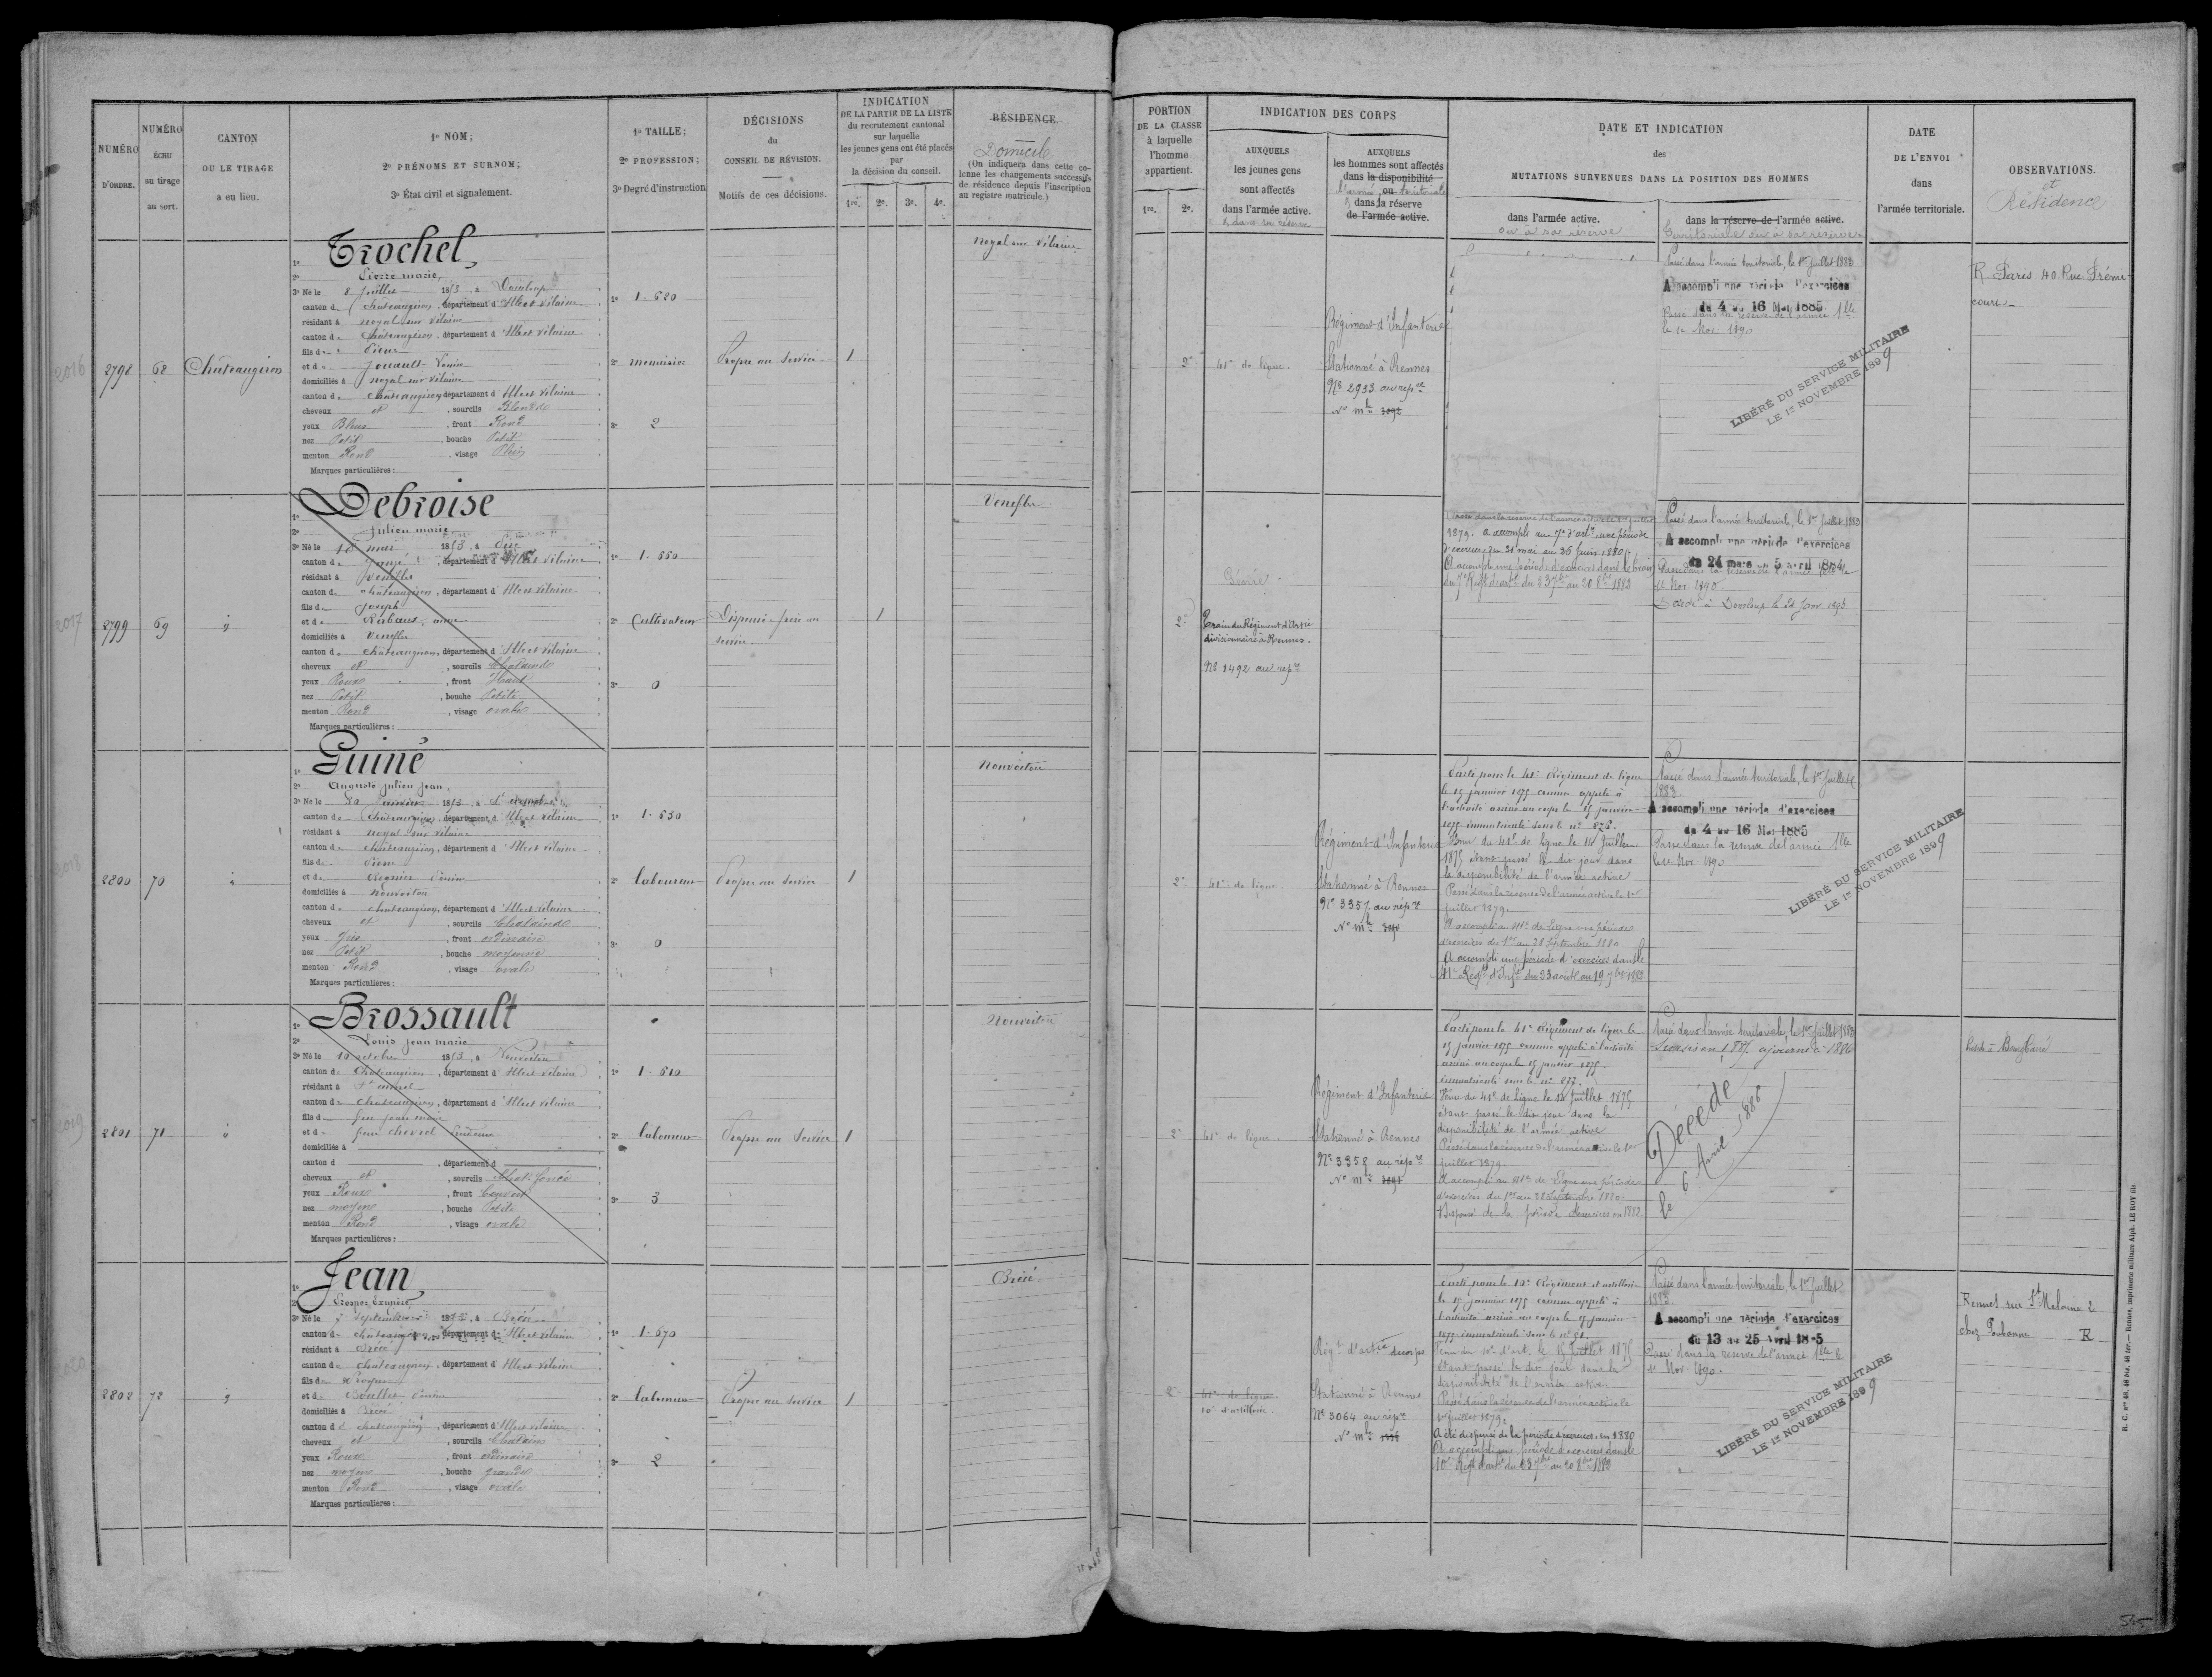 NUMÉRO D'ORDRE.
NUMÉRO ÉCHU au tirage au sort.
CANTON OU LE TIRAGE a eu lieu.
1º NOM;
2º PRÉNOMS ET SURNOM;
3º État civil et signalement.
1º TAILLE;
2º PROFESSION;
3º Degré d'instruction
DÉCISIONS du CONSEIL DE RÉVISION.
Motifs de ces décisions.
INDICATION
DE LA PARTIE DE LA LISTE
du recrutement cantonal
sur laquelle
les jeunes gens ont été placés
par
la décision du conseil.
1re. 2e. 3e. 4e.
RÉSIDENCE
Domicile
(On indiquera dans cette colonne les changements successifs de résidence depuis l'inscription au registre matricule.)
PORTION
DE LA CLASSE
à laquelle
l'homme
appartient.
1re. 2e.
INDICATION DES CORPS
AUXQUELS
les jeunes gens
sont affectés
dans l'armée active.
& dans sa réserve
AUXQUELS
les hommes sont affectés
dans la disponibilité
l'armée ou territoriale
& dans la réserve
de l'armée active.
DATE ET INDICATION
des
MUTATIONS SURVENUES DANS LA POSITION DES HOMMES
dans l'armée active.
ou à sa réserve
dans la réserve de l'armée active.
territoriale ou à sa réserve
DATE
DE L'ENVOI
dans
l'armée territoriale.
OBSERVATIONS.
et
Résidence
2016
2798
68
Châteaugiron
1º Trochel
2º Pierre marie
3º Né le 8 Juillet 1853, à Domloup
canton de Châteaugiron, département d'Ille et Vilaine
résidant à noyal sur Vilaine
canton de Châteaugiron, département d'Ille et Vilaine
fils de Pierre
et de Jouault
domiciliés à noyal sur Vilaine
canton de Châteaugiron département d'Ille et Vilaine
cheveux et, sourcils Blonds
yeux Bleus, front Rond
nez Petit, bouche Petit
menton Rond, visage Plein
Marques particulières:
1º 1.620
2º menuisier
3º 2
Propre au service
1
noyal sur Vilaine
2e
41e de ligne.
Régiment d'Infanterie
Stationné à Rennes
Nº 2933 au repre
Nº mle
Passé dans l'armée territoriale, le 1er Juillet 1883
A accompli une période d'exercices
du 4 au 16 Mai 1885
Passé dans la réserve de l'armée tlle
le 1er Nov. 1890
LIBÉRÉ DU SERVICE MILITAIRE
LE 1er NOVEMBRE 1899
R Paris 40 Rue Frémicourt
2017
2799
69
1º Debroise
2º Julien marie
3º Né le 18 mai 1853, à Piré
canton de Janzé, département d'Ille et Vilaine
résidant à Venèfles
canton de Châteaugiron, département d'Ille et Vilaine
fils de Joseph
domiciliés à Venèfles
canton de Châteaugiron, département d'Ille et Vilaine
cheveux et, sourcils Châtains
yeux Roux, front Haut
nez Petit, bouche Petite
menton Rond, visage ovale
Marques particulières:
1º 1.660
2º Cultivateur
3º 0
1
Venèfles
2e
Train du Régiment d'Artie
divisionnaire à Rennes.
Nº 1492 au repre
Passé dans la réserve de l'armée active le 1er Juillet
1879. A accompli au 7e d'artie une période
d'exercices du 31 mai au 25 Juin 1880.
A accompli une période d'exercices dans le
au 7e Régt d'artie du 23 7bre au 20 8bre 1882
Passé dans l'armée territoriale, le 1er Juillet 1883
A accompli une période d'exercices
du 24 mars au 5 avril 1884
Passé dans la réserve de l'armée
1er Nov. 1890
Décédé à Domloup le 24 Janv. 1893
2018
2800
70
1º Guiné
2º Auguste Julien Jean
3º Né le 30 Janvier 1853, à St armel
canton de Châteaugiron, département d'Ille et Vilaine
résidant à noyal sur Vilaine
canton de Châteaugiron, département d'Ille et Vilaine
fils de Pierre
et de Régnier
domiciliés à nouvoitou
canton de Châteaugiron, département d'Ille et Vilaine
cheveux et, sourcils Châtains
yeux Gris, front ordinaire
nez Petit, bouche moyenne
menton Rond, visage ovale
Marques particulières:
1º 1.630
2º laboureur
3º 0
Propre au service
1
nouvoitou
2e
41e de ligne
Régiment d'Infanterie
Stationné à Rennes
Nº 3357 au repre
Nº mle
Parti pour le 41e Régiment de ligne
le 15 janvier 1875 comme appelé à
l'activité arrivé au corps le 15 janvier
1875 immatriculé sous le nº 876.
Venu du 41e de ligne le 14 Juillet
1875 étant passé le dit jour dans
la disponibilité de l'armée active
Passé dans la réserve de l'armée active le 1er
juillet 1879.
A accompli au 41e de Ligne une période
d'exercices du 1er au 28 Septembre 1880
A accompli une période d'exercices dans le
41e Régt d'Infie du 23 août au 19 7bre 1882
Passé dans l'armée territoriale, le 1er Juillet
1883.
A accompli une période d'exercices
du 4 au 16 Mai 1885
Passé dans la réserve de l'armée tlle
le 1er Nov. 1890
LIBÉRÉ DU SERVICE MILITAIRE
LE 1er NOVEMBRE 1899
2019
2801
71
1º Brossault
2º Louis Jean marie
3º Né le 19 octobre 1853, à Nouvoitou
canton de Châteaugiron, département d'Ille et Vilaine
résidant à St armel
canton de Châteaugiron, département d'Ille et Vilaine
fils de feu jean marie
et de feue chevrel
domiciliés à
canton d, département d
cheveux et, sourcils Chat. foncé
yeux Roux, front Couvert
nez moyen, bouche Petite
menton Rond, visage ovale
Marques particulières:
1º 1.610
2º laboureur
3º 3
Propre au Service
1
Nouvoitou
2e
41e de ligne
Régiment d'Infanterie
Stationné à Rennes
Nº 3358 au repre
Nº mle
Parti pour le 41e Régiment de ligne le
15 janvier 1875 comme appelé à l'activité
arrivé au corps le 15 janvier 1875.
immatriculé sous le nº 877.
Venu du 41e de Ligne le 14 Juillet 1875
étant passé le dit jour dans la
disponibilité de l'armée active
Passé dans la réserve de l'armée active le 1er
juillet 1879.
A accompli au 41e de Ligne une période
d'exercices du 1er au 28 Septembre 1880.
Dispensé de la période d'exercices en 1882
Passé dans l'armée territoriale, le 1er Juillet 1883
Sursis en 1885 ajourné à 1886
Décédé
le 6 Avril 1886
Bourgbarré
2020
2802
72
1º Jean
2º Prosper Exupère
3º Né le 7 Septembre 1853, à Brécé
canton de Châteaugiron, département d'Ille et Vilaine
résidant à Brécé
canton de Châteaugiron, département d'Ille et Vilaine
domiciliés à Brécé
canton de Châteaugiron, département d'Ille et Vilaine
cheveux et, sourcils Châtains
yeux Roux, front ordinaire
nez moyen, bouche grande
menton Rond, visage ovale
Marques particulières:
1º 1.670
2º laboureur
3º 2
Propre au service
1
Brécé
2e
41e de ligne
10e d'artillerie.
Régt d'artie de corps
Stationné à Rennes
Nº 3064 au repre
Nº mle
Parti pour le 10e Régiment d'artillerie
le 15 janvier 1875 comme appelé à
l'activité arrivé au corps le 15 janvier
1875 immatriculé sous le nº
Venu du 10e d'art. le 15 Juillet 1875
étant passé le dit jour dans la
disponibilité de l'armée active
Passé dans la réserve de l'armée active le
1er juillet 1879.
A été dispensé de la période d'exercices en 1880
A accompli une période d'exercices dans le
10e Régt d'artie du 23 7bre au 20 8bre 1882
Passé dans l'armée territoriale, le 1er Juillet
1883.
A accompli une période d'exercices
du 13 au 25 Avril 1885
Passé dans la réserve de l'armée tlle le
1er Nov. 1890.
LIBÉRÉ DU SERVICE MILITAIRE
LE 1er NOVEMBRE 1899
Rennes rue St Melaine 2
chez R
R. C. nos 40, 46 bis, 46 ter.— Rennes, imprimerie militaire Alph. LE ROY fils